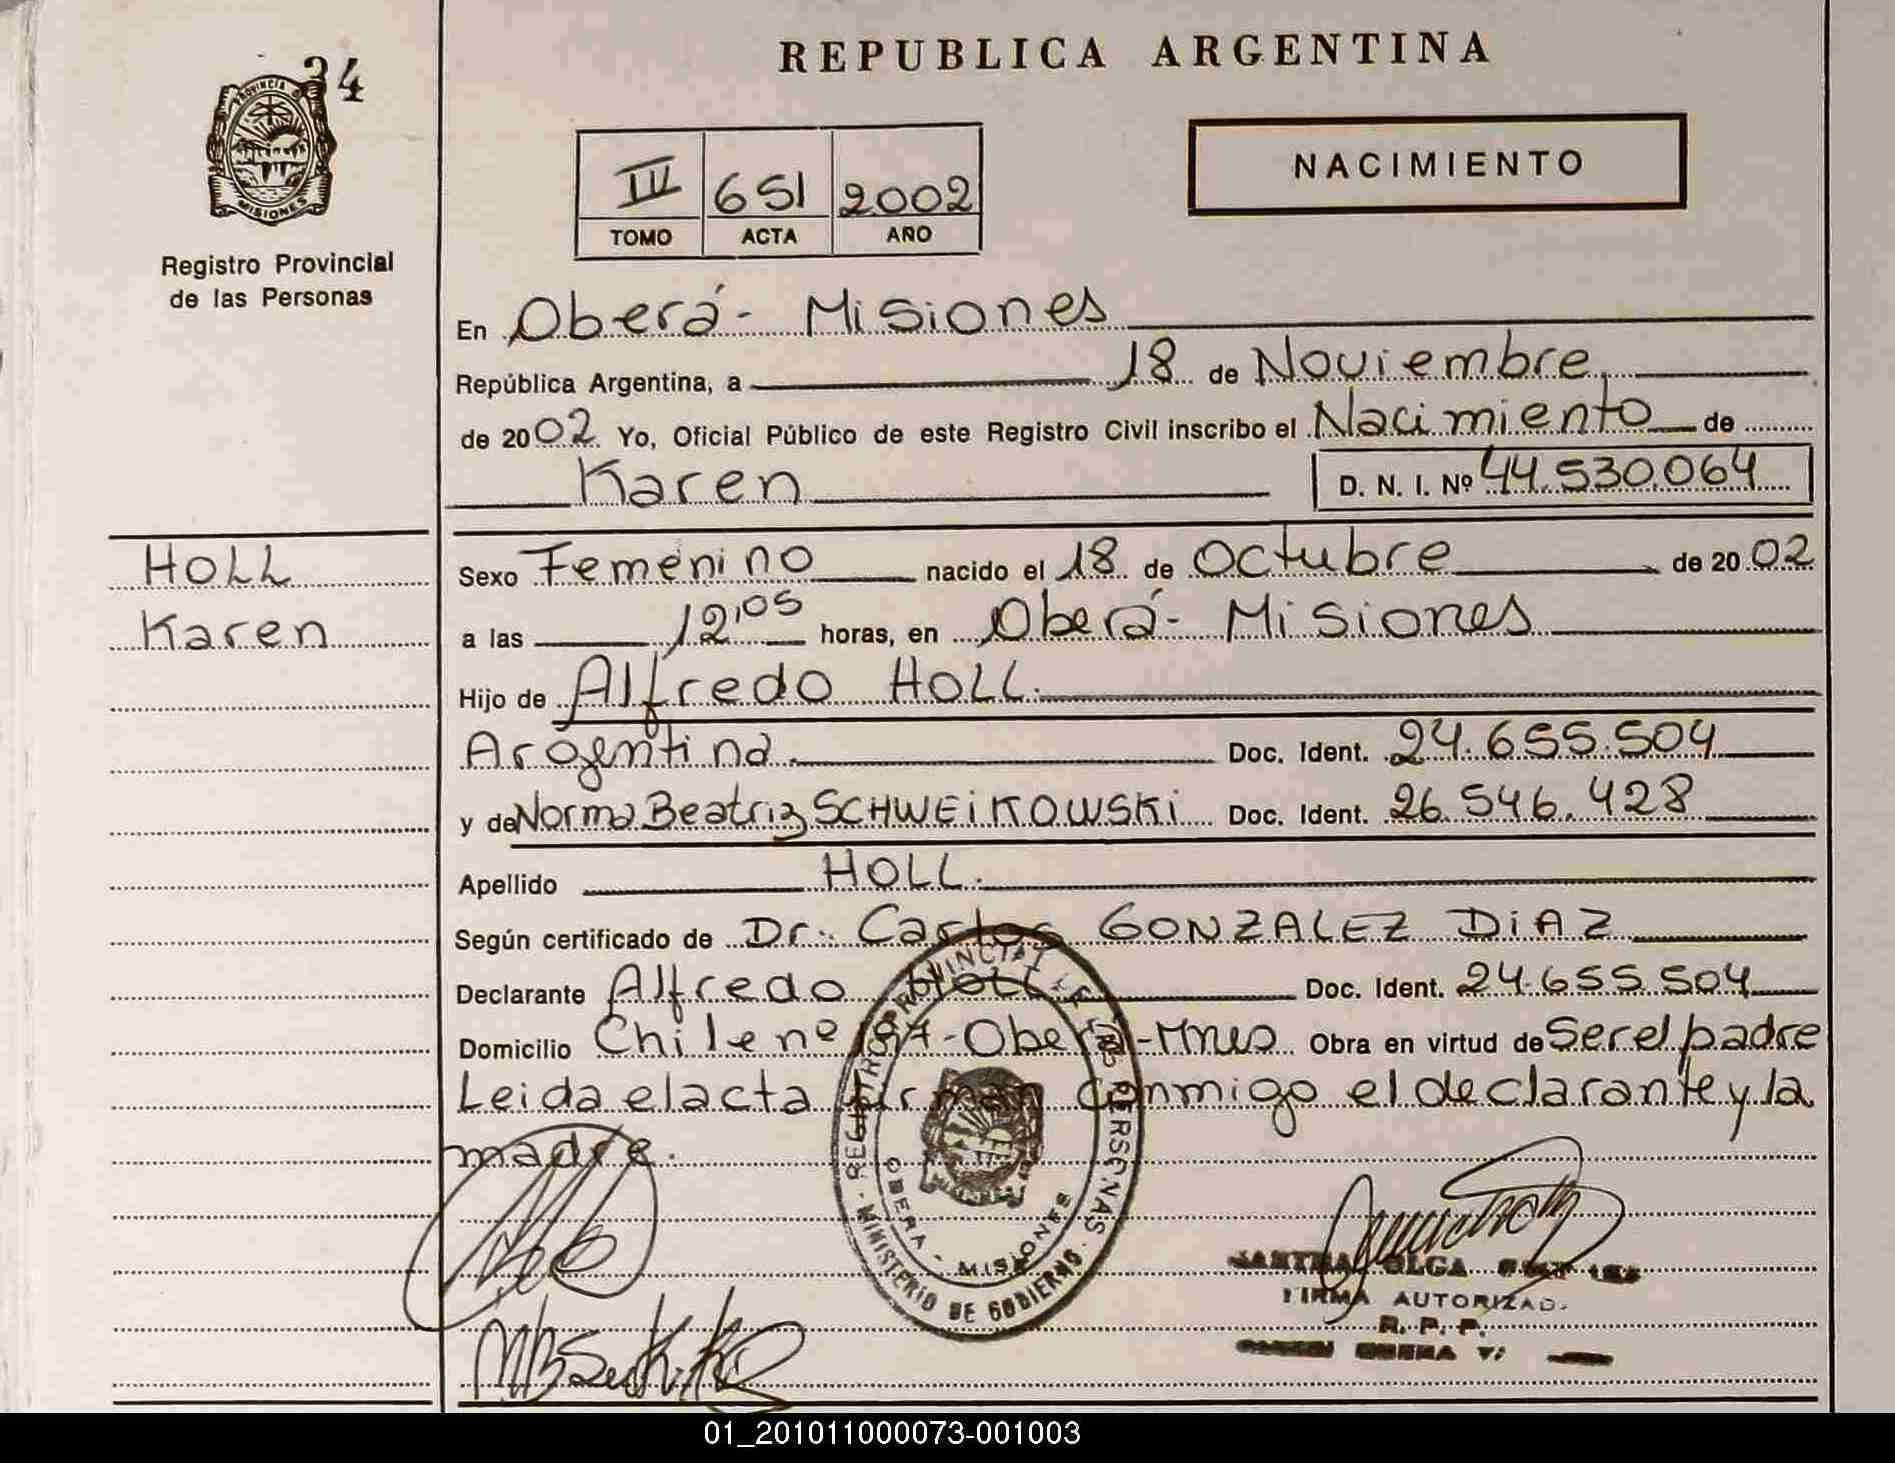 34
REPUBLICA ARGENTINA
PROVINCIA DE
MISIONES
Registro Provincial
de las Personas
III 651 2002
TOMO ACTA AÑO
NACIMIENTO
En Oberá - Misiones
República Argentina, a 18 de Noviembre
de 2002 Yo, Oficial Público de este Registro Civil inscribo el Nacimiento de
Karen D. N. I. Nº 44.530.064
HOLL
Karen
Sexo Femenino nacido el 18 de Octubre de 2002
a las 12,05 horas, en Oberá - Misiones
Hijo de Alfredo HOLL.
Argentina Doc. Ident. 24.655.504
y de Norma Beatriz SCHWEiKOWSKi Doc. Ident. 26.546.428
Apellido HOLL.
Según certificado de Dr. Carlos GONZALEZ DiAZ
Declarante Alfredo Holl Doc. Ident. 24.655.504
Domicilio Chile nº - Oberá - Mnes Obra en virtud de Ser el padre
Leida el acta firman conmigo el declarante y la
madre.
REGISTRO PROVINCIAL DE LAS PERSONAS
MINISTERIO DE GOBIERNO
OBERA - MISIONES
OLGA
FIRMA AUTORIZAD.
R. P. P.
01_201011000073-001003